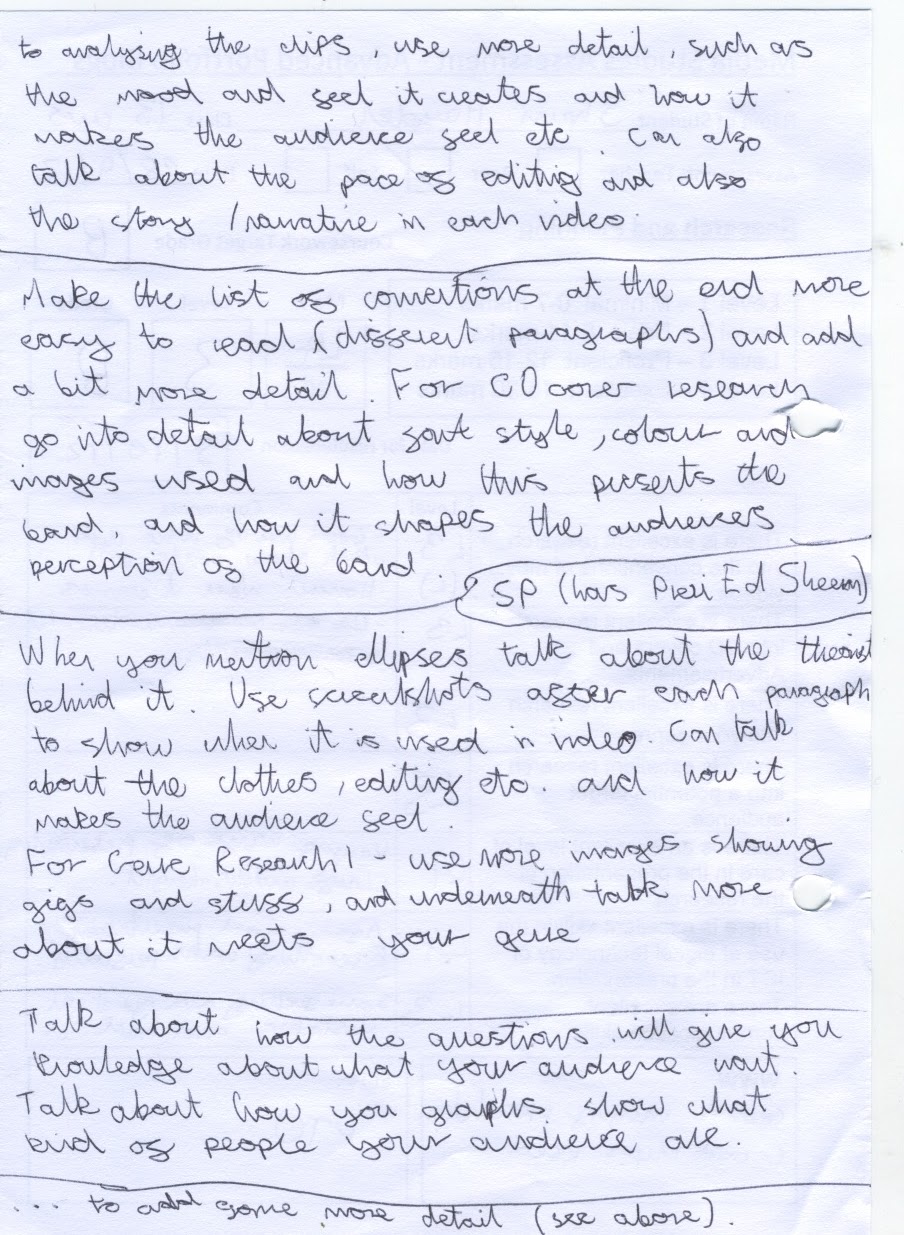 to analysing the clips, use more detail, such as
the mood and feel it creates and how it
makes the audience feel etc. Can also
talk about the pace of editing and also
the story / narrative in each video.
Make the list of conventions at the end more
easy to read (different paragraphs) and add
a bit more detail. For CD cover research
go into detail about font style, colour and
images used and how this presents the
band, and how it shapes the audiences
perception of the band.
SP (has Prezi Ed Sheeran)
When you mention ellipses talk about the theorist
behind it. Use screenshots after each paragraph
to show when it is used in video. Can talk
about the clothes, editing etc. and how it
makes the audience feel.
For Genre Research 1 - use more images showing
gigs and stuff, and underneath talk more
about it meets your genre
Talk about how the questions will give you
knowledge about what your audience want.
Talk about how you graphs show what
kind of people your audience are.
... to add some more detail (see above).